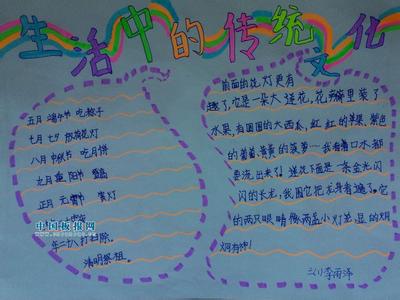 生活中的传统文化
五月 端午节 吃粽子
七月 七夕 放荷花灯
八月 中秋节 吃月饼
九月 重阳节 登高
正月 元宵节 赏灯
中国板报网
年二八 打扫除.
清明祭祖.
前面的花灯更有
趣了,它是一朵大莲花,花瓣里装了
水果,有圆圆的大西瓜,红红的苹果,紫色
的葡萄,黄黄的菠萝…我看着口水都
要流出来了!莲花下面是一条金光闪
闪的长龙,我围它把龙身看遍了。它
的两只眼睛像两盏小灯笼,显的炯
炯有神!
三(1)李雨泽